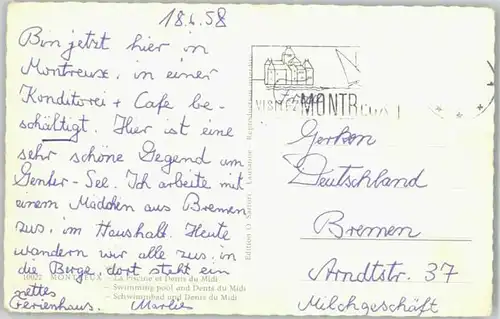 18.6.58
Bin jetzt hier in
Montreux, in einer
Konditorei + Cafe be-
schäftigt. Hier ist eine
sehr schöne Gegend am
Genfer-See. Ich arbeite mit
einem Mädchen aus Bremen
zus. im Haushalt. Heute
wandern wir alle zus. in
die Berge, dort steht ein
nettes
Ferienhaus. Marlies
10022 - MONTREUX - La Piscine et Dents du Midi
- Swimming pool and Dents du Midi
- Schwimmbad und Dents du Midi
Edition O. Sartori, Lausanne - Reproduction
VISITEZ MONTREUX
Gerken
Deutschland
Bremen
Arndtstr. 37
Milchgeschäft